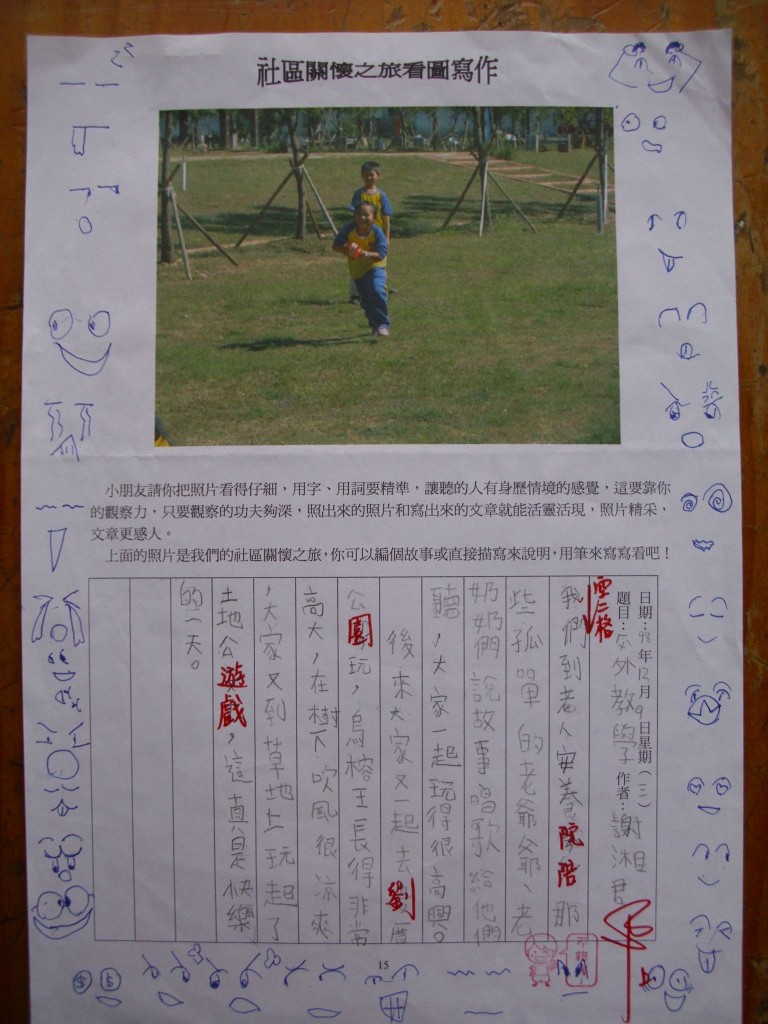 社區關懷之旅看圖寫作
小朋友請你把照片看得仔細，用字、用詞要精準，讓聽的人有身歷情境的感覺，這要靠你
的觀察力，只要觀察的功夫夠深，照出來的照片和寫出來的文章就能活靈活現，照片精采，
文章更感人。
上面的照片是我們的社區關懷之旅，你可以編個故事或直接描寫來說明，用筆來寫寫看吧！
日期：98年12月9日星期（三）
題目：戶外教學 作者：謝湘君
空二格
我們到老人安養院陪那
些孤單的老爺爺、老
奶奶們說故事唱歌給他們
聽，大家一起玩得很高興。
後來大家又一起去劉厝
公園玩，鳥榕王長得非常
高大，在樹下吹風很涼爽
，大家又到草地上玩起了
土地公遊戲，這真是快樂
的一天。
15